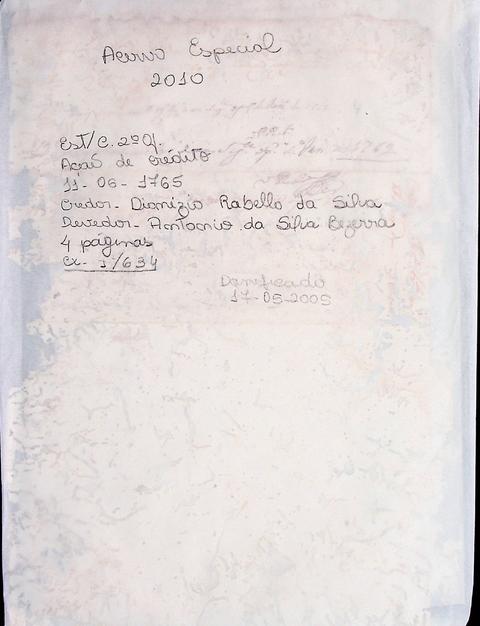 Acervo Especial
2010
Est/C. 2º Of.
Ação de crédito
11-06-1765
Credor- Dionízio Rabello da Silva
Devedor- Antonio da Silva Bezerra
4 páginas
Cx- I/634
Danificado
17-05-2005